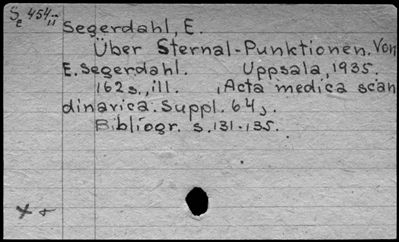 Se 454:ii
Segerdahl, E.
Über Sternal-Punktionen. Von
E. Segerdahl. Uppsala, 1935.
162 s., ill. (Acta medica scan
dinavica. Suppl. 64).
Bibliogr. s. 131-135.